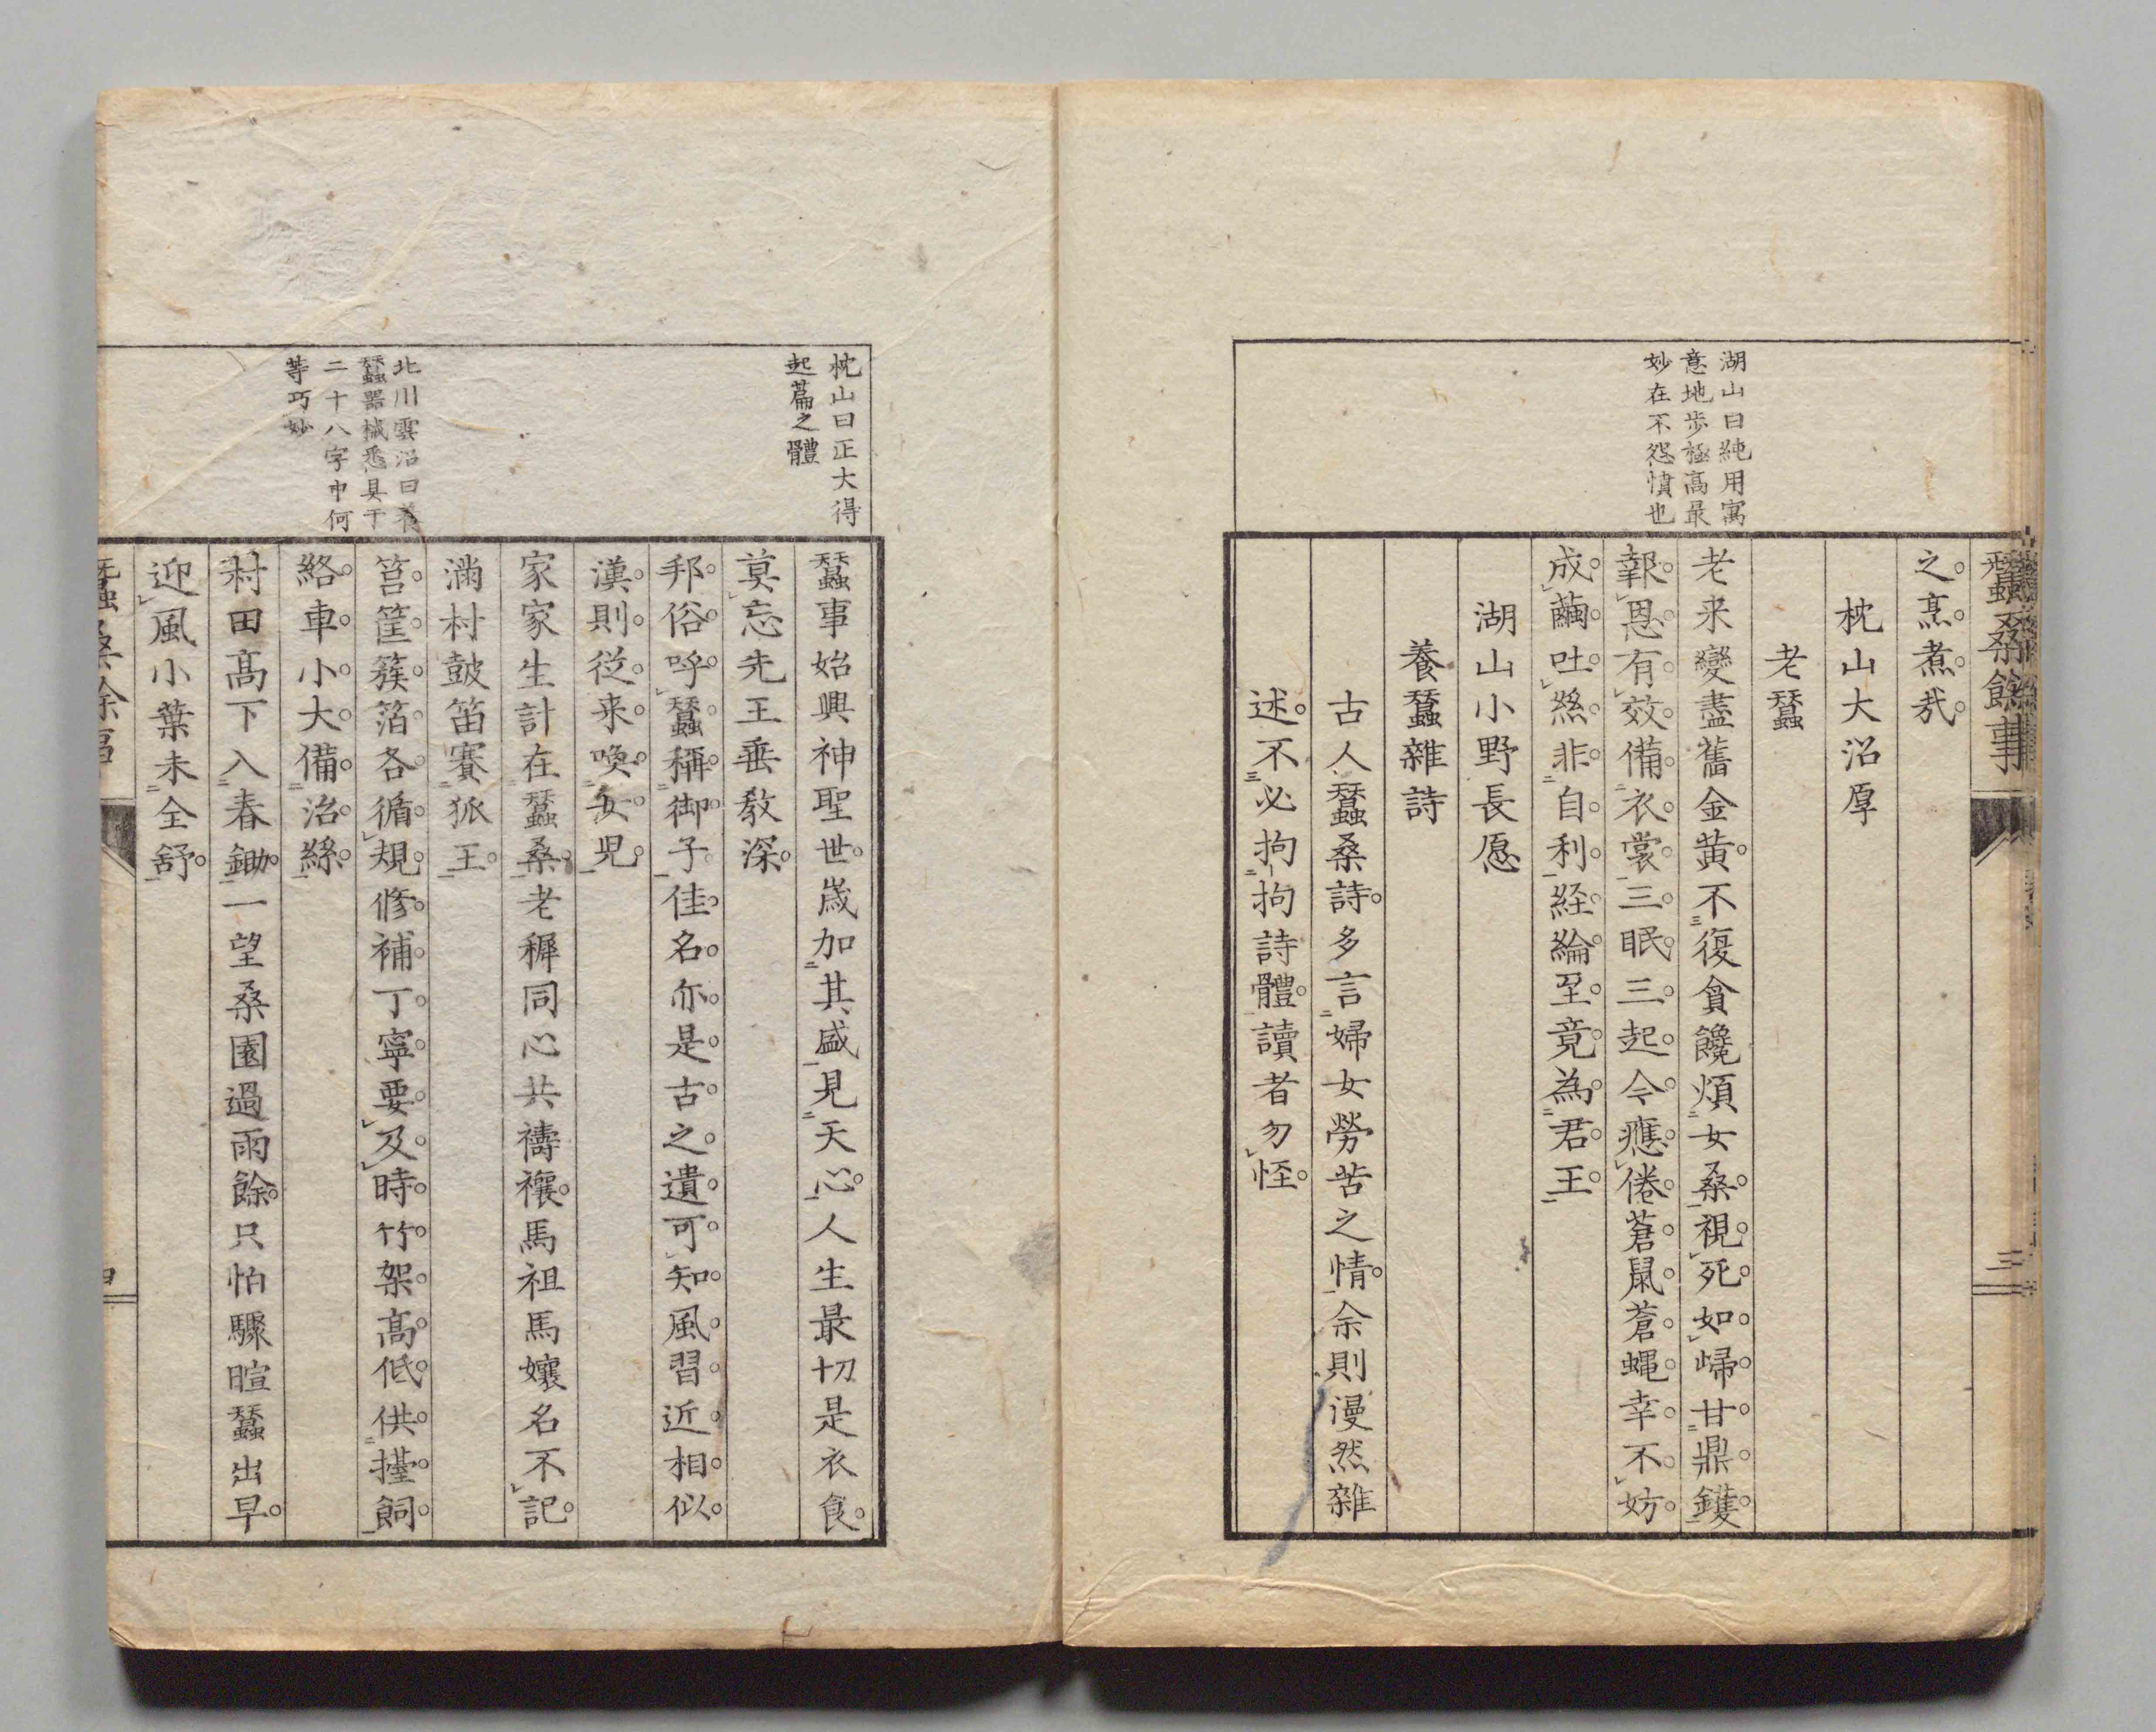 蠶桑餘事
三
湖山曰純用寓
意地歩極高最
妙在不怨憤也
之烹煮哉
枕山大沼厚
老蠶
老来變盡舊金黄不復貪饞煩女桑視死如歸甘鼎鑊
報恩有效備衣裳三眠三起令應倦蒼鼠蒼蠅幸不妨
成繭吐絲非自利経綸至竟為君王
湖山小野長愿
養蠶雜詩
古人蠶桑詩多言婦女勞苦之情余則漫然雜
述不必拘拘詩體讀者勿怪
枕山曰正大得
起篇之體
北川雲沼曰養
蠶器械悉具于
二十八字中何
等巧妙
蠶事始興神聖世歳加其盛見天心人生最切是衣食
莫忘先王垂教深
邦俗呼蠶稱御子佳名亦是古之遺可知風習近相似
漢則従来喚女児
家家生計在蠶桑老穉同心共禱禳馬祖馬孃名不記
滿村鼓笛賽狐王
筥筐簇箔各循規修補丁寧要及時竹架高低供擡飼
絡車小大備治絲
村田高下入春鋤一望桑園過雨餘只怕驟暄蠶出早
迎風小葉未全舒